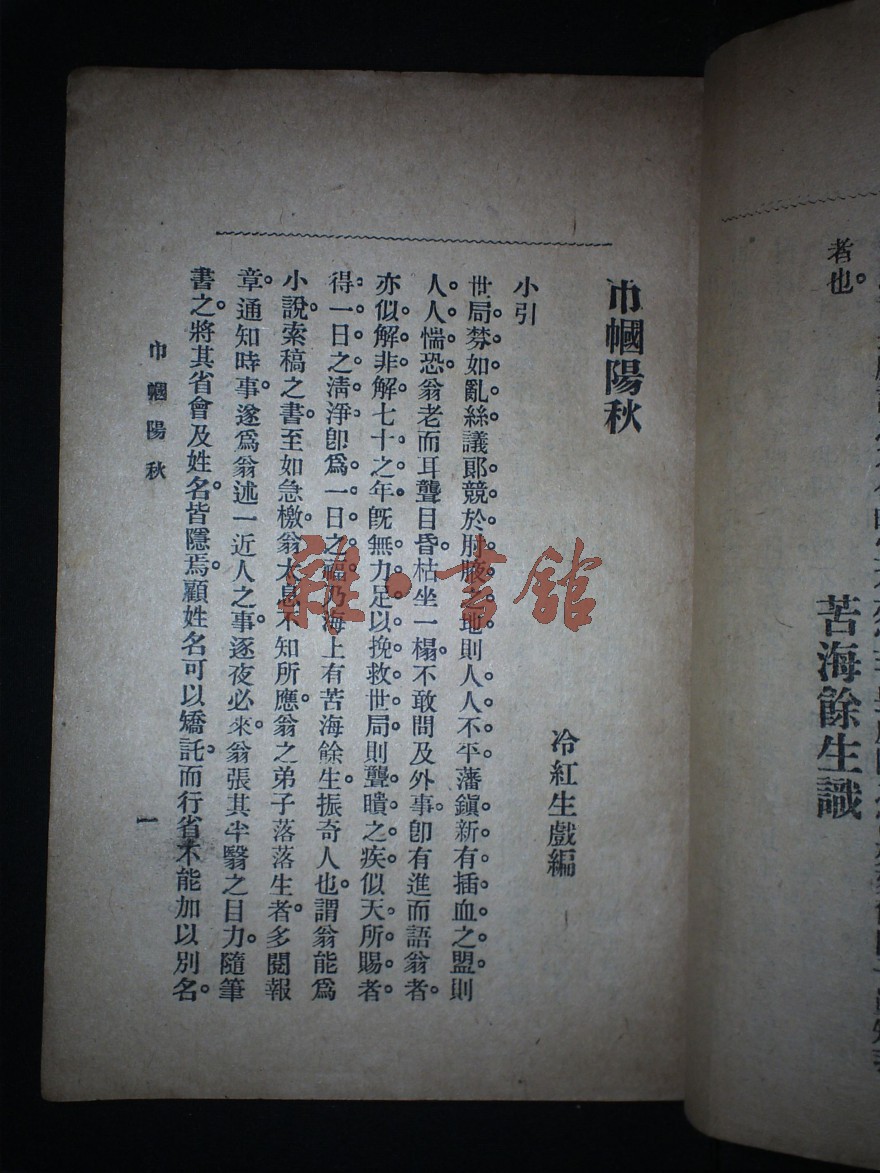 者也。
苦海餘生識
巾幗陽秋
冷紅生戲編
小引
世局棼如亂絲議郎競於肘腋之地則人人不平藩鎮新有插血之盟則
人人惴恐翁老而耳聾目昏枯坐一榻不敢問及外事卽有進而語翁者
亦似解非解七十之年旣無力足以挽救世局則聾聵之疾似天所賜者
得一日之清淨卽爲一日之福乃海上有苦海餘生振奇人也謂翁能爲
小說索稿之書至如急檄翁太息不知所應翁之弟子落落生者多閱報
章通知時事遂爲翁述一近人之事逐夜必來翁張其半翳之目力隨筆
書之將其省會及姓名皆隱焉顧姓名可以矯託而行省不能加以別名
巾幗陽秋
一
雜·書館